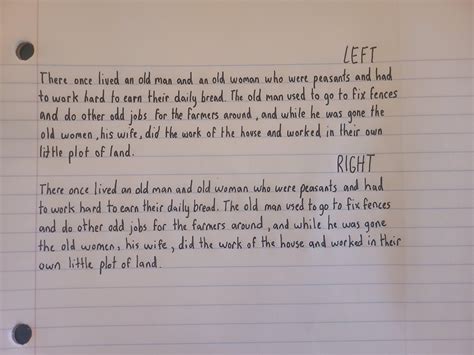 LEFT
There once lived an old man and an old woman who were peasants and had
to work hard to earn their daily bread. The old man used to go to fix fences
and do other odd jobs for the farmers around, and while he was gone the
old women, his wife, did the work of the house and worked in their own
little plot of land.
RIGHT
There once lived an old man and old woman who were peasants and had
to work hard to earn their daily bread. The old man used to go to fix fences
and do other odd jobs for the farmers around, and while he was gone
the old women, his wife, did the work of the house and worked in their
own little plot of land.